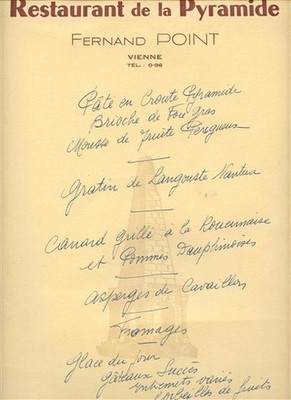 Restaurant de la Pyramide
FERNAND POINT
VIENNE
TÉL.: 0-96
Pâté en Croute Pyramide
Brioche de Foie Gras
Mousse de Truite Périgueux
Gratin de Langouste Nantua
Canard grillé a la Rouennaise
et Pommes Dauphinoises
Asperges de Cavaillon
Fromages
Glace du Jour
Gâteaux Succès
Entremets variés
Corbeilles de fruits